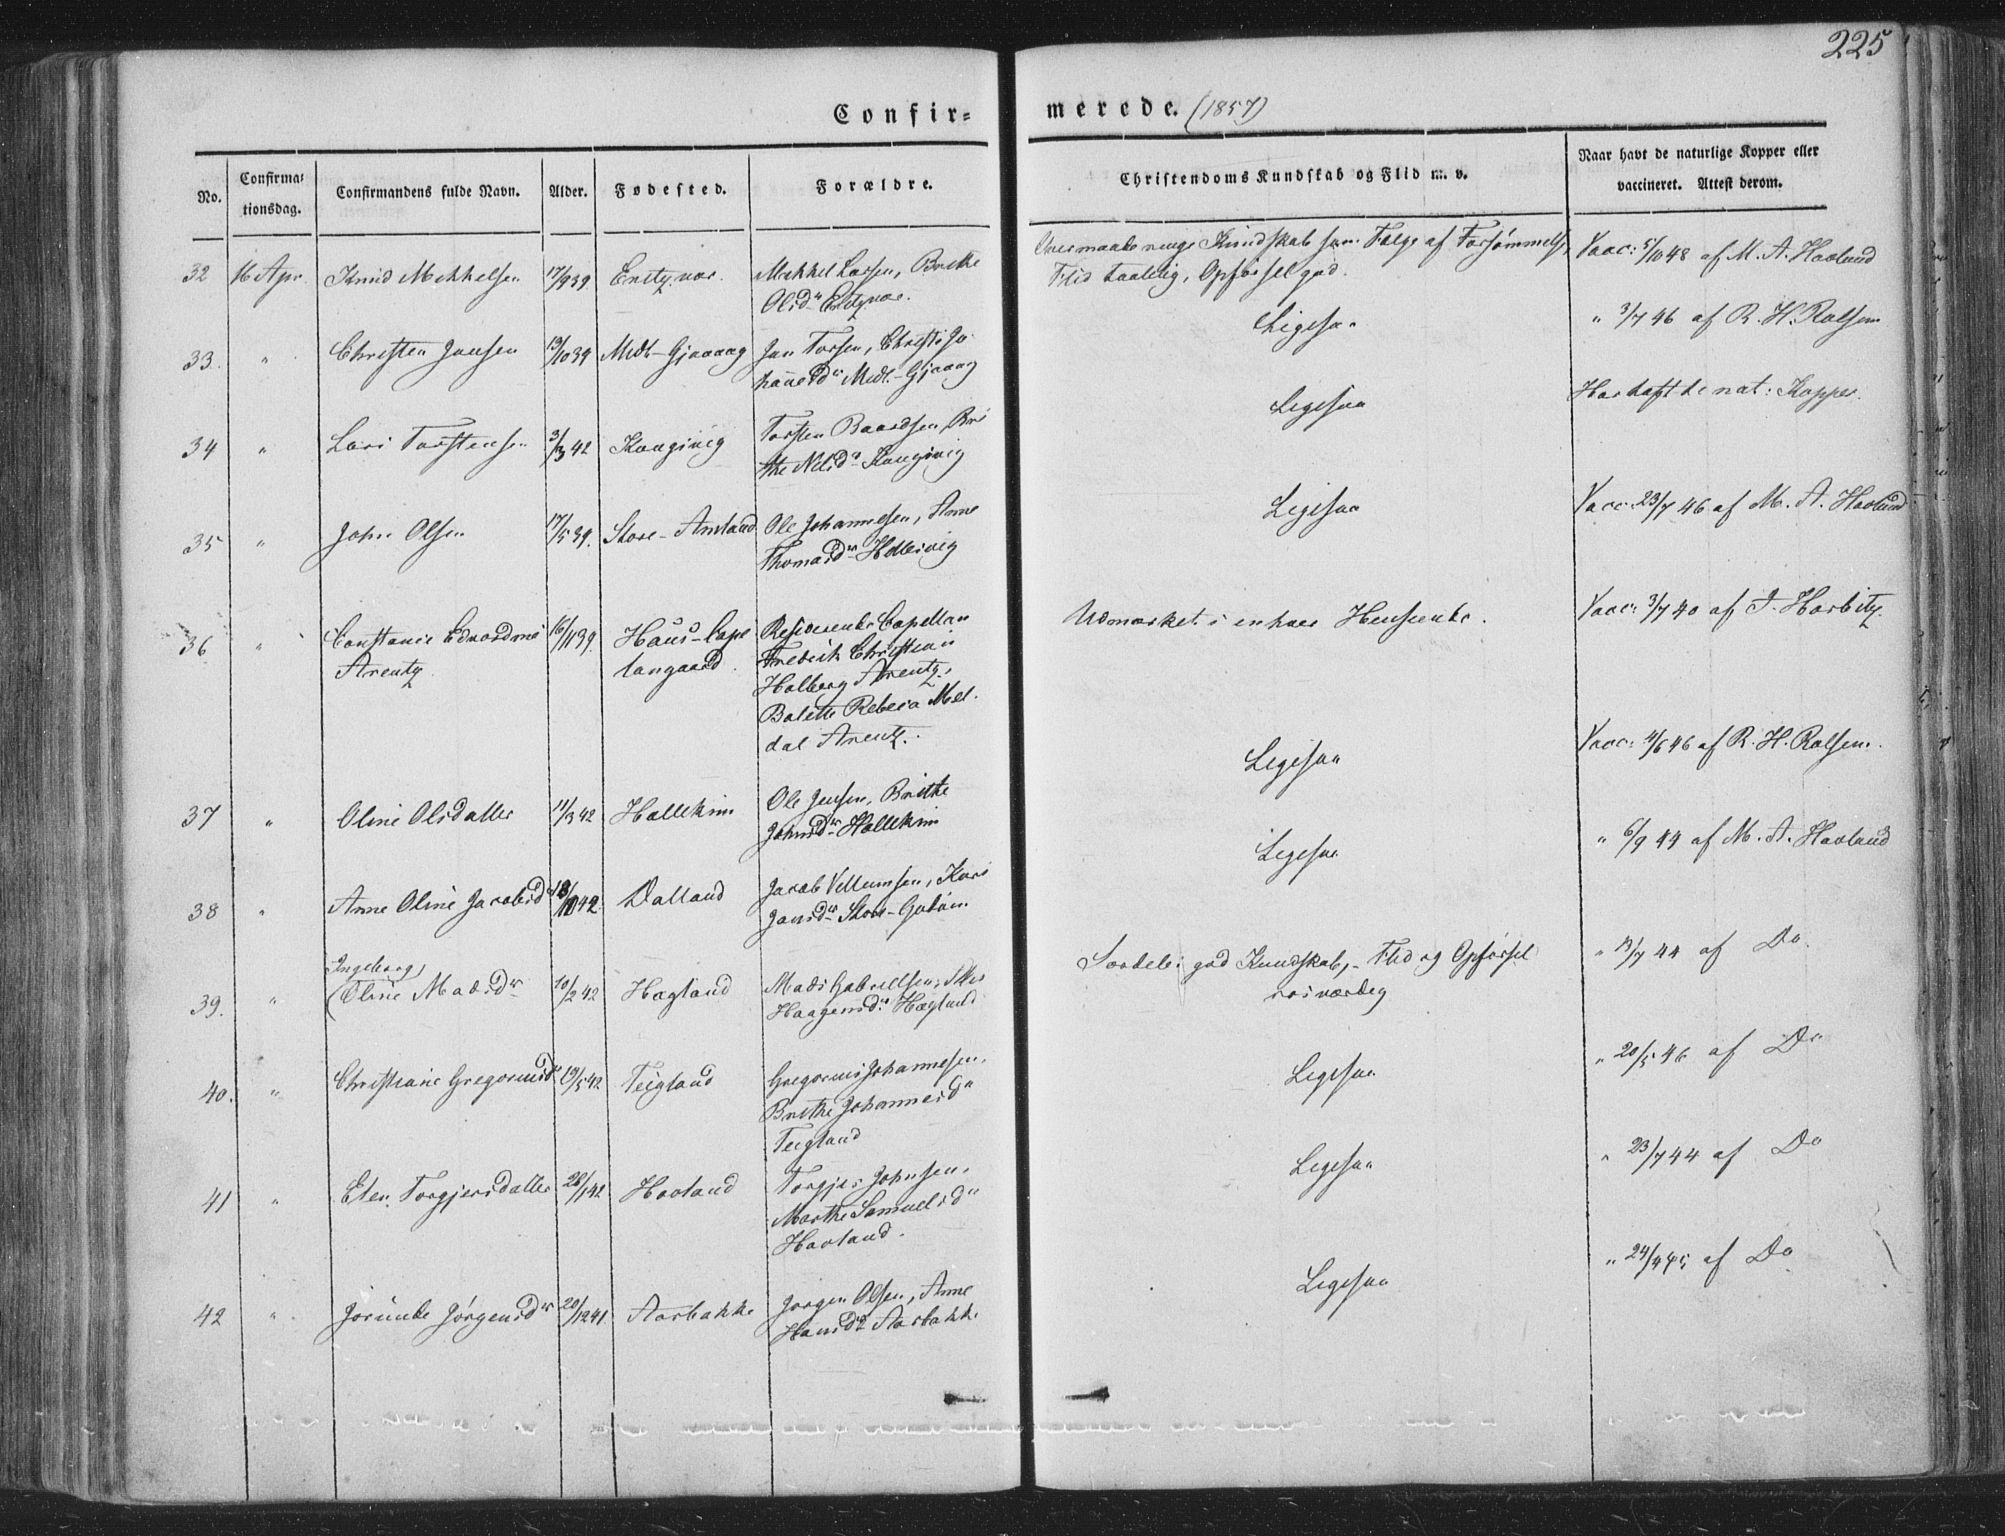 225
Confir-
merede. (1857)
No.
Confirma-
tionsdag.
Confirmandens fulde Navn.
Alder.
Fødested.
Forældre.
Christendoms Kundskab og Flid m. v.
Naar havt de naturlige Kopper eller
vaccineret. Attest derom.
32 16 Apr. Knud Mikkelsen 17/9 39 Mikkel Larsen, Brithe
Olsd
Kundskab som Følge af Forsømmelse,
Flid taalelig, Opførsel god.
Vacc: 5/10 48 af M. A. Hovland
33. " Christen Jansen 19/10 39 Midt-Gjaaaag Jan Torsen, Christi Jo
hanesdr Midt-Gjaaag
Ligesaa
" 3/7 46 af R. H. Rolfsen
34 " Lars Torstensen 3/3 42 Kongsvig Torsten Baardsen, Bri
the Nilsdr Kongsvig
Ligesaa
Har havt de nat: Kopper.
35 " John Olsen 17/5 39. Store-Amland Ole Johannesen, Anne
Thomasdr
Ligesaa
Vacc: 23/7 46 af M. A. Hovland
36 " Constance Edvardine 16/11 39. Haus-Cape
Arentz
langaard.
Residerende Capellan
Frederik Christian
Holberg Arentz,
Bolette Rebecca Mel
dal Arentz.
Udmærket i enhver Henseende.
Vacc: 3/7 40 af J. Harbitz.
37 " Oline Olsdatter 11/3 42 Hallekim Ole Jensen, Brithe
Johnsdr Hallekim
Ligesaa
Vacc: 4/6 46 af R. H. Rolfsen.
38 " Anne Oline Jacobsd 18/10 42 Dalland Jacob Villumsen, Kari
Jansdr Store-
Ligesaa
" 6/9 44 af M. A. Hovland
39. " Ingeborg
(Oline Madsdr 10/2 42 Hagland Mads Gabrielsen, Siks
Haagensdr Hagland
Særdeles god Kundskab, Flid og Opførsel
rosværdig
" 13/7 44 af Do.
40. " Christiane Gregoriusd 19/5 42 Teigland Gregorius Johannesen,
Brithe Johannesdr
Teigland
Ligesaa
" 20/5 46 af Do
41 " Elen Torgjersdatter 28/1 42 Hovland Torgjer Johnsen,
Marthe Samuelsdr
Hovland.
Ligesaa
" 23/7 44 af Do
42 " Jorunde Jørgensdr 20/12 41. Aarbakke Jørgen Olsen, Anne
Hansdr Aarbakke
Ligesaa
" 24/4 45 af Do